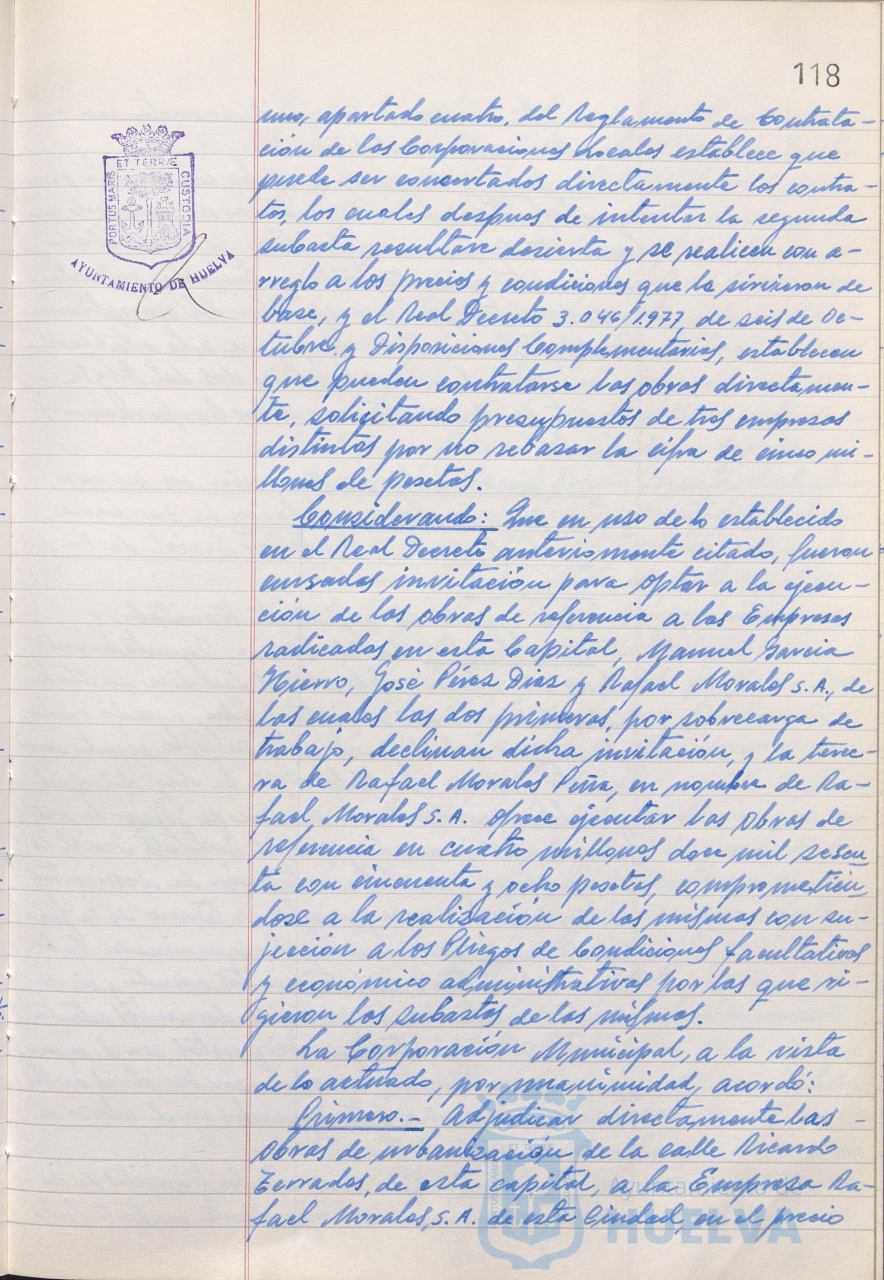 118
PORTUS MARIS ET TERRÆ CUSTODIA
AYUNTAMIENTO DE HUELVA
uno, apartado cuatro, del Reglamento de Contrata-
ción de las Corporaciones Locales establece que
puede ser concertados directamente los contra-
tos, los cuales despues de intentar la segunda
subasta resultare desierta y se realicen con a-
rreglo a los precios y condiciones que le sirvieron de
base, y el Real Decreto 3.046/1.977, de seis de Oc-
tubre y Disposiciones Complementarias, establecen
que pueden contratarse las obras directamen-
te, solicitando presupuestos de tres empresas
distintas por no rebasar la cifra de cinco mi-
llones de pesetas.
Considerando: Que en uso de lo establecido
en el Real Decreto anteriormente citado, fueron
cursadas invitación para optar a la ejecu-
ción de las obras de referencia a las Empresas
radicadas en esta Capital, Manuel Garcia
Hierro, José Pérez Diaz y Rafael Morales S.A., de
las cuales las dos primeras, por sobrecarga de
trabajo, declinan dicha invitación, y la terce-
ra de Rafael Morales Peña, en nombre de Ra-
fael Morales S.A. ofrece ejecutar las obras de
referencia en cuatro millones doce mil sesen
ta con cincuenta y ocho pesetas, comprometien
dose a la realización de las mismas con su-
jección a los Pliegos de Condiciones facultativas
y económico administrativas por las que ri-
gieron las subastas de las mismas.
La Corporación Municipal, a la vista
de lo actuado, por unanimidad, acordó:
Primero.- Adjudicar directamente las
obras de urbanización de la calle Ricardo
Terrades, de esta capital, a la Empresa Ra-
fael Morales, S.A. de esta Ciudad, en el precio
Ayuntamiento de
HUELVA